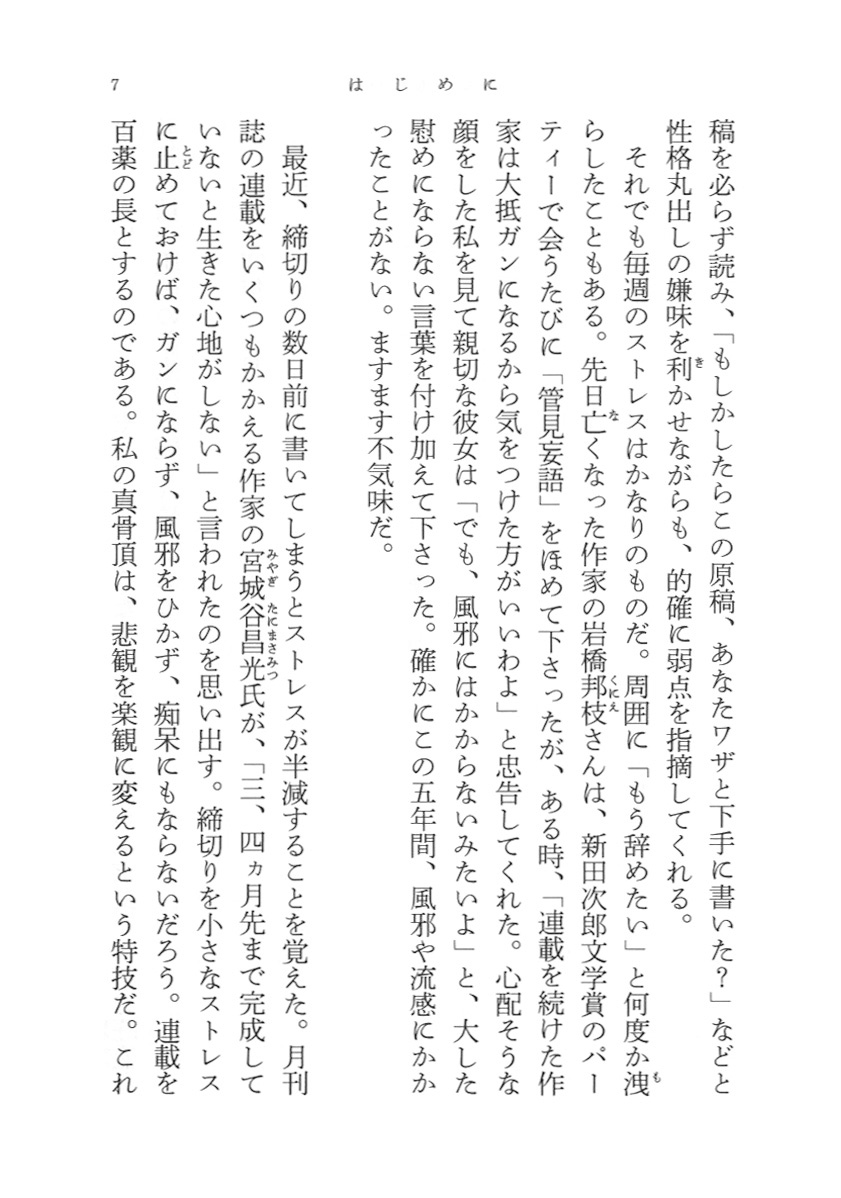 はじめに
7
稿を必らず読み、「もしかしたらこの原稿、あなたワザと下手に書いた？」などと
性格丸出しの嫌味を利かせながらも、的確に弱点を指摘してくれる。
それでも毎週のストレスはかなりのものだ。周囲に「もう辞めたい」と何度か洩
らしたこともある。先日亡くなった作家の岩橋邦枝さんは、新田次郎文学賞のパー
ティーで会うたびに「管見妄語」をほめて下さったが、ある時、「連載を続けた作
家は大抵ガンになるから気をつけた方がいいわよ」と忠告してくれた。心配そうな
顔をした私を見て親切な彼女は「でも、風邪にはかからないみたいよ」と、大した
慰めにならない言葉を付け加えて下さった。確かにこの五年間、風邪や流感にかか
ったことがない。ますます不気味だ。
最近、締切りの数日前に書いてしまうとストレスが半減することを覚えた。月刊
誌の連載をいくつもかかえる作家の宮城谷昌光氏が、「三、四ヵ月先まで完成して
いないと生きた心地がしない」と言われたのを思い出す。締切りを小さなストレス
に止めておけば、ガンにならず、風邪をひかず、痴呆にもならないだろう。連載を
百薬の長とするのである。私の真骨頂は、悲観を楽観に変えるという特技だ。これ